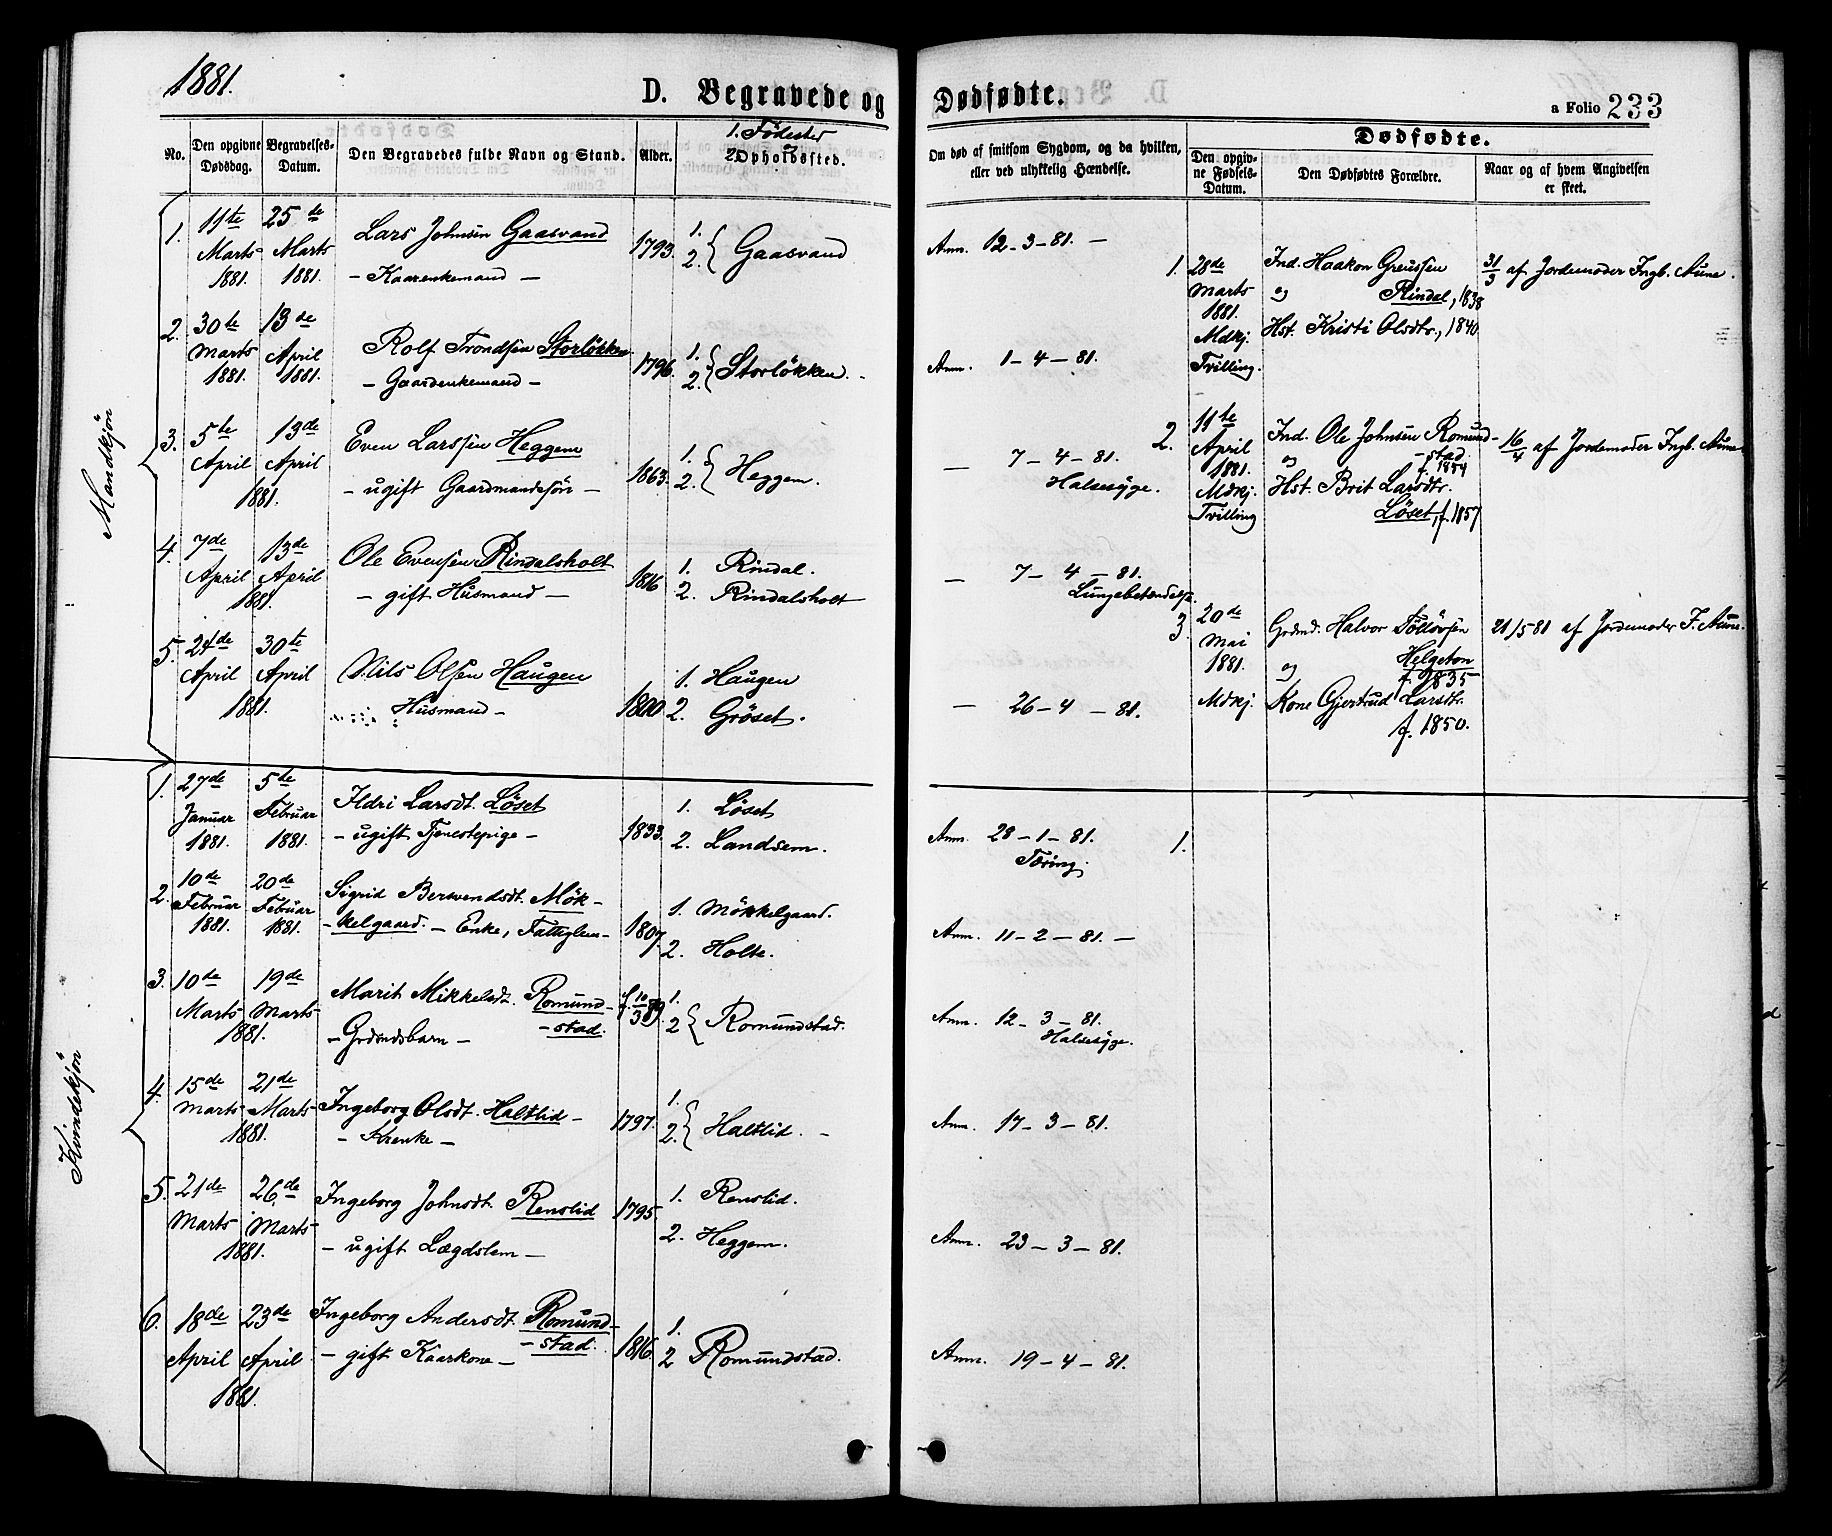 1881.
D. Begravede og Dødfødte.
a Folio 233
No.
Den opgivne Dødsdag.
Begravelses-Datum.
Den Begravedes fulde Navn og Stand.
Alder.
1. Fødested
2. Opholdssted.
Om død af smitsom Sygdom, og da hvilken,
eller ved ulykkelig Hændelse.
Dødfødte.
Den opgiv-
ne Fødsels-
Datum.
Den Dødfødtes Forældre.
Naar og af hvem Angivelsen
er skeet.
Mandkjøn
1. 11te Marts 1881. 25de Marts 1881. Lars Johnsen Gaasvand 1793. 1. 2. { Gaasvand Anm. 12-3-81. -
- Kaarenkemand -
2. 30te Marts 1881. 13de April 1881. Rolf Trondsen Storløkken 1796. 1. 2. { Storløkken. - Anm. 1-4-81.
- Gaardenkemand -
3. 5te April 13de April 1881. Even Larssen Heggem 1863. 1. 2. { Heggem. — 7-4-81.
- ugift Gaardmandssøn - Halssyge.
4. 7de April 13de April 1881. Ole Evensen Rindalsholt 1816 1. Rindal. — 7-4-81.
- gift Husmand - 2. Rindalsholt Lungebetændelse
5. 24de April 30te April 1881. Nils Olsen Haugen 1800. 1. Haugen — 26-4-81.
Husmand - 2. Grøset.
1. 28de Marts 1881. Mdkj. Tvilling. Ind. Haakon Greussen
og Rindal, 1838
Hst. Kristi Olsdtr., 1840.
31/3 af Jordemoder Ingb. Aune.
2. 11te April 1881. Mdkj. Tvilling Ind. Ole Johnsen Romund-
og -stad. f. 1854
Hst. Brit Larsdtr.
Løset, f. 1857
16/4 af Jordemoder Ingb. Aune
3. 20de Mai 1881. Mdkj. Grdmd. Halvor Tølløvsen
og Helgeton f. 1835
Kone Gjertrud Larsdtr.
f. 1850.
21/5 81 af Jordemoder I. Aune.
Kvindekjøn
1. 27de Januar 1881. 5te Februar 1881. Ildri Larsdt. Løset 1833. 1. Løset Anm. 28-1-81. 1.
- ugift Tjenestepige - 2. Landsem. Tæring.
2. 10de Februar 1881. 20de Februar 1881. Sigrid Bersvendsdt. Møk-
-kelgaard. - Enke, Fattiglem - 1807 1. Møkkelgaard. 2. Holte. Anm. 11-2-81. -
3. 10de Marts 19de Marts 1881. Marit Mikkelsdt. Romund-
-stad. - Grdmdsbarn - f. 10/3 80. 1. 2 { Romundstad. Anm. 12-3-81.
Halssyge.
4. 15de Marts 21de Marts 1881. Ingeborg Olsdt. Haltlid - 1797. 1. 2. { Haltlid. - Anm. 17-3-81.
- Krenke -
5. 21de Marts 26de Marts 1881. Ingeborg Johnsdt. Renslid 1795. 1. Renslid.
- ugift Lægdslem - 2. Heggem. Anm. 23-3-81.
6. 18de April 23de April 1881. Ingeborg Andersdt. Romund-
-stad. - gift Kaarkone - 1816. 1. 2 Romundstad. Anm. 19-4-81.